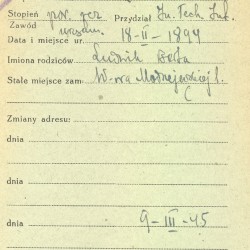 Stopień por. rez. Przydział Zu. Tech. Int.
Zawód urzędn.
Data i miejsce ur. 18-II-1899
Imiona rodziców Ludwik Berta
Stałe miejsce zam. W-wa
Zmiany adresu:
dnia
dnia
dnia 9-III-45